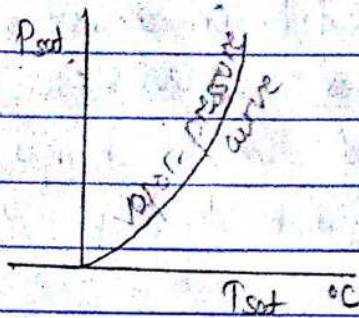 Psat
vapor-pressure
curve
Tsat °C